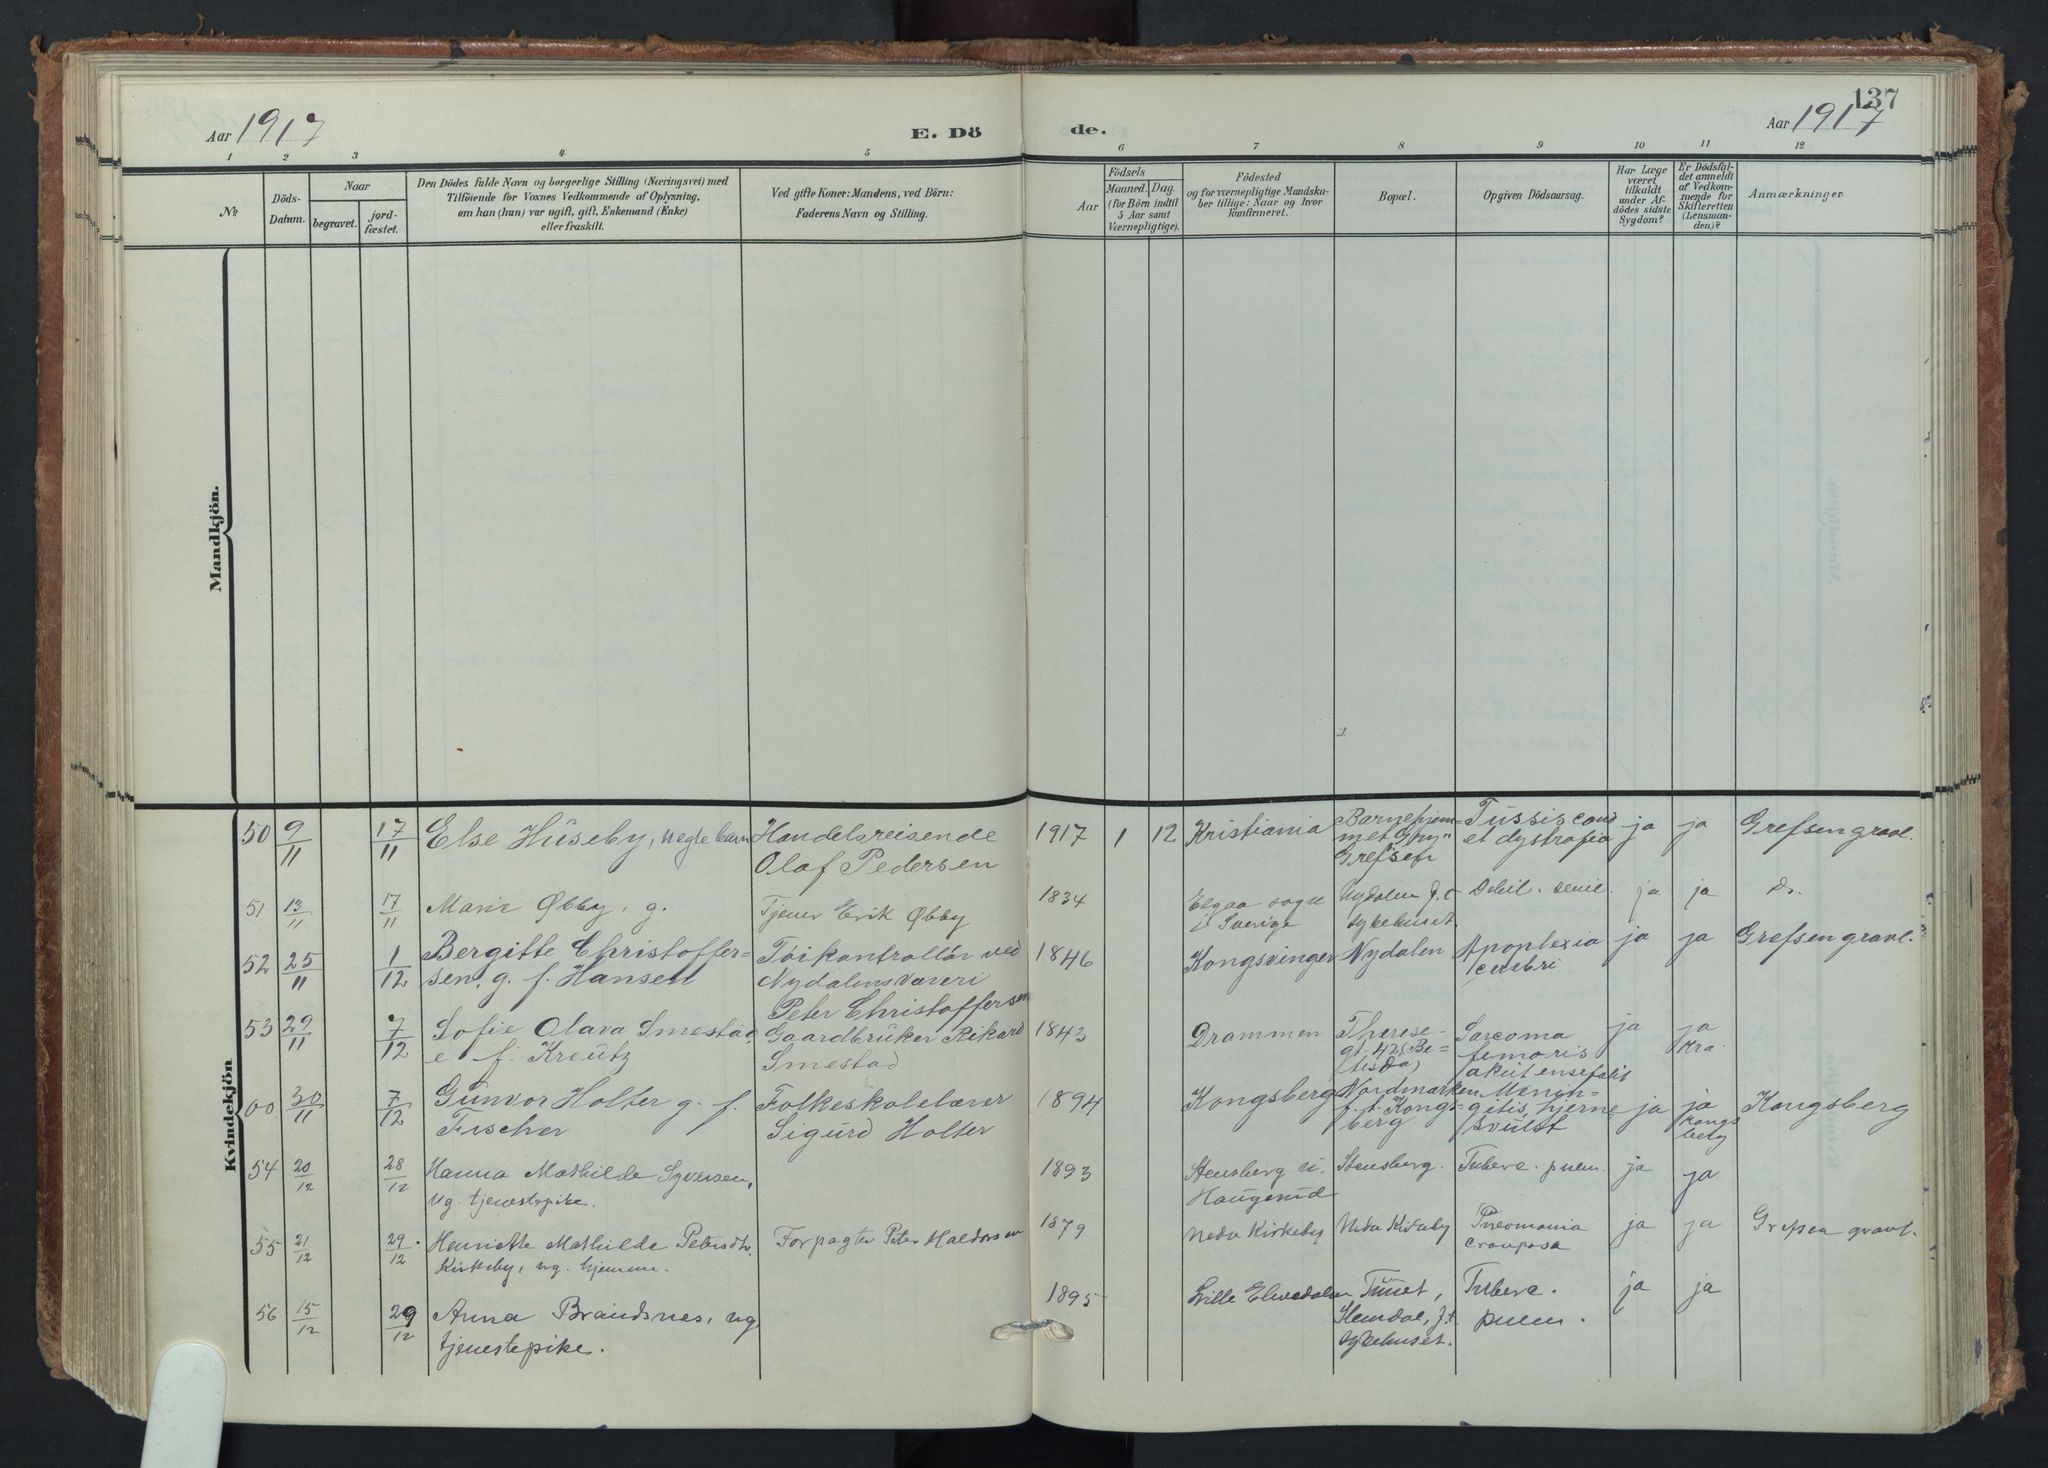 Aar 1917
E. Dö
de.
137
Aar 1917
1 2 3 4 5 6 7 8 9 10 11 12
№
Döds-
Datum.
Naar
begravet.
jord-
fæstet.
Den Dödes fulde Navn og borgerlige Stilling (Næringsvei) med
Tilföiende for Voxnes Vedkommende af Oplysning,
om han (hun) var ugift, gift, Enkemand (Enke)
eller fraskilt.
Ved gifte Koner: Mandens, ved Börn:
Faderens Navn og Stilling.
Födsels
Aar
Maaned. Dag.
(for Börn indtil
5 Aar samt
Værnepligtige).
Födested
og for værnepligtige Mandska-
ber tillige: Naar og hvor
Konfirmeret.
Bopæl.
Opgiven Dödsaarsag.
Har Læge
været
tilkaldt
under Af-
dödes sidste
Sygdom?
Er Dödsfal-
det anmeldt
af Vedkom-
mende for
Skifteretten
(Lensman-
den)?
Anmærkninger.
Mandkjön.
Kvindekjön
50 9/11 17/11 Else Huseby, uegte barn
Handelsreisende
Olaf Pedersen
1917 1 12 Kristiania
Barnehjem-
met
Grefsen
Tussis conv
et dystrofia
ja ja Grefsen gravl.
51 13/11 17/11 Marie Øbby, g.
Tjener Erik Øbby
1834 Elgaa sogn
i Sverige
Nydalen f. t.
sykehuset.
Debil. senil.
ja ja do.
52 25/11 1/12 Bergitte Christoffer-
sen, g. f. Hansen
Töikontrollör ved
Nydalens Væveri
Peter Christoffersen
1846 Kongsvinger
Nydalen
Apoplexia
cerebri
ja ja Grefsen gravl.
53 29/11 7/12 Sofie Olava Smestad,
e f. Kreutz
Gaardbruker Rikard
Smestad
1843 Drammen
Therese-
gt. 42 (Be-
tesda)
Sarcoma
femoris
ja ja
Kra.
00 30/11 7/12 Gunvor Holter g. f.
Fischer
Folkeskolelærer
Sigurd Holter
1894 Kongsberg
Nordmarken
f. t. Kongs-
berg
akut ensefalit
Menin-
gitis, hjerne
svulst
ja ja
Kongs
berg
Kongsberg
54 20/12 28/12 Hanna Mathilde Syversen,
ug. tjenestepike.
1893 Stensberg u.
Haugerud
Stensberg.
Tuberc. pulm.
ja ja
55 21/12 29/12 Henriette Mathilde Petersdtr.
Kirkeby, ug. hjemme.
Forpagter Peter Haldorsen
1879 Nedre Kirkeby
Nedre Kirkeby
Pneomonia
crouposa
ja ja Grefsen gravl.
56 15/12 29/12 Anna Brandsnes, ug.
tjenestepike.
1895 Lille Elvedalen
Tuset,
Hemdal, f. t.
sykehuset.
Tuberc.
pulm.
ja ja